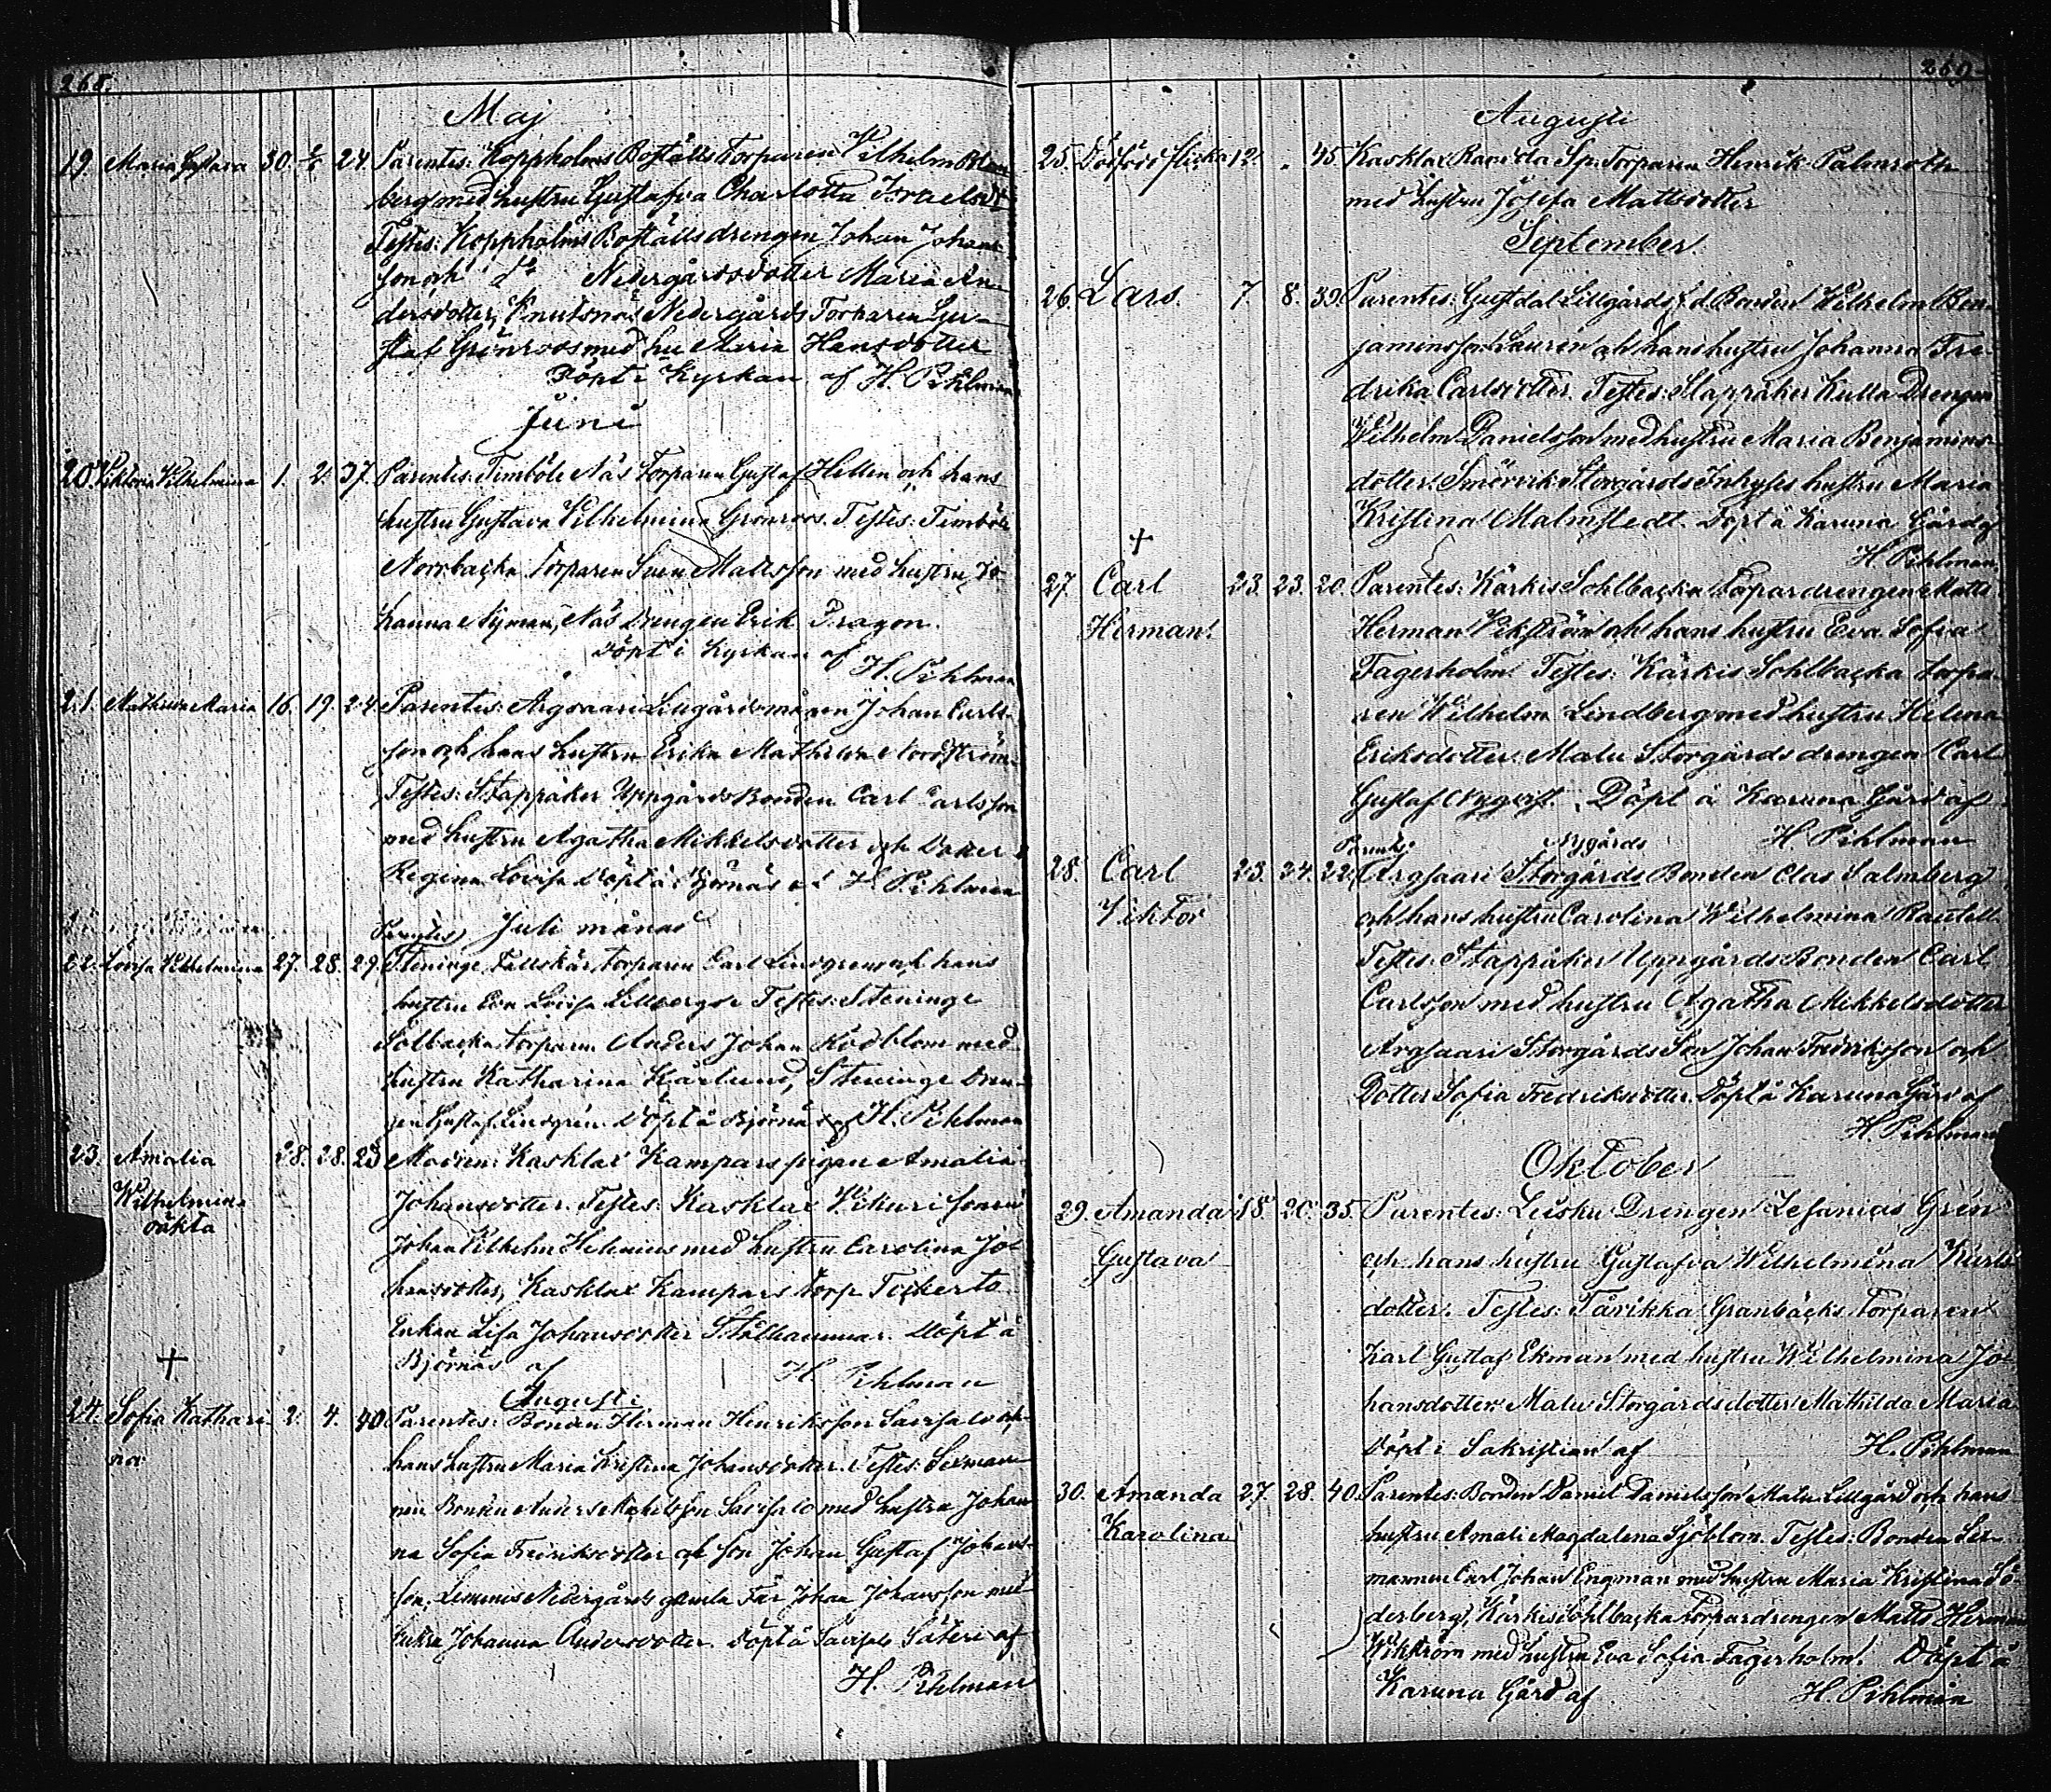 268.
Maj
19. Maria Gustava 30. 2/6 24. Parentes: Koppholms Boställs Torparen Wilhelm Blom
berg med hustru Gustafva Charlotta Israelsdr
Testes: Koppholms Boställs drengen Johan Johans
son och do Nedergårdsdotter Maria An
dersdotter, Knutsnäs Nedergårds Torparen Gu-
staf Grönroos med hu Maria Hansdotter
Döpt i Kyrkan af H. Pihlman
Juni
20. Viktoria Vilhelmina 1. 2. 37. Parentes: Timböle Näs Torparen Gustaf Hellen och hans
hustru Gustava Vilhelmina Grönroos. Testes: Timböle
Norrbacka Torparen Sven Mattsson med hustru Jo-
hanna Nyman, Näs Drengen Erik Dragon.
Döpt i Kyrkan af
H. Pihlman
21. Mathilda Maria 16. 19. 24. Parentes: Argsaari Lillgårds mågen Johan Carls-
son och hans hustru Erika Mathilda Nordström
Testes: Stappåker Uppgårds Bonden Carl Carlsson
med hustru Agatha Mikkelsdotter och Dotter
Regina Lovisa Döpt å Björnäs af H. Pihlman
Juli månad
Parentes
22. Lovisa Vilhelmina 27. 28. 29. Steninge Fallskär torparen Carl Lindgren och hans
hustru Eva Lovisa Testes: Steninge
Solbacka torparen Anders Johan Rödblom med
hustru Katharina Härlund, Steninge Dren-
gen Gustaf Lindgrén. Döpt å Björnäs af H. Pihlman
23. Amalia 28. 28. 25 Modren: Kasklax Kampars pigan Amalia
Wilhelmina Johansdotter. Testes: Kasklax Vikuri sonen
oäkta
Johan Vilhelm Helenius med hustru Carolina Jo-
hansdotter, Kasklax Kampars torp
Enkan Lisa Johansdotter Stålhammar. Döpt å
Björnäs af H. Pihlman
+
Augusti
24. Sofia Kathari 2. 4. 40 Parentes: Bonden Herman Henriksson Savisalo och
na
hans hustru Maria Kristina Johansdotter. Testes: Sexman
nen Bonden Anders Mickelsson Savisalo med hustru Johan
na Sofia Fredriksdotter och son Johan Gustaf Johans-
son, Nedergårds gamla Far Johan Johansson med
hustru Johanna Andersdotter. Döpt å Savisalo Säteri af
H. Pihlman
269.
Augusti
25. Dödfödd flicka 12. . 45. Kasklax Ranida Sp. Torparen Henrik Palmroth
med hustru Josefa Mattsdotter
September
26. Lars. 7. 8. 39. Parentes: Gustdal Lillgårds f.d. Bonden Wilhelm Ben-
jaminsson Laurén och hans hustru Johanna Fre-
drika Carlsdotter. Testes: Stappåker Kulla Drengen
Wilhelm Danielsson med hustru Maria Benjamins-
dotter. Smörvik Storgårds Inhyses hustru Maria
Kristina Malmstedt. Döpt å Karuna Gård af
H. Pihlman
+
27. Carl 23. 23. 20. Parentes: Kärkis Sohlbacka Torpardrengen Matts
Herman.
Herman Vikström och hans hustru Eva Sofia
Fagerholm. Testes: Kärkis Sohlbacka torpa-
ren Wilhelm Lindberg med hustru Helena
Eriksdotter. Malu Storgårds drengen Carl
Gustaf Nyqvist. Döpt å Karuna Gård af
H. Pihlman
Parentes: Nygårds
28. Carl 23. 24. 22. Argsaari Storgårds Bonden Clas Salmberg
Viktor och hans hustru Carolina Wilhelmina Rautell
Testes: Stappåker Uppgårds Bonden Carl
Carlsson med hustru Agatha Mikkelsdotter
Argsaari Storgårds Son Johan Fredriksson och
Dotter Sofia Fredriksdotter. Döpt å Karuna Gård af
H. Pihlman
Oktober
29. Amanda 18. 20. 35. Parentes: Leisku Drengen Zefanias Grén
Gustava och hans hustru Gustafva Wilhelmina Karls
dotter. Testes: Tårikka Granbäcks Torparen
Karl Gustaf Ekman med hustru Wilhelmina Jo-
hansdotter Malu Storgårds dotter Mathilda Maria
Döpt i Sakristian af H. Pihlman
30. Amanda 27. 28. 40. Parentes: Bonden Daniel Danielsson Malu Lillgård och hans
Karolina hustru Amali Magdalena Sjöblom. Testes: Bonden Sex-
mannen Carl Johan Engman med hustru Maria Kristina Sö-
derberg, Kärkis Sohlbacka Torpardrengen Matts Herman
Wikström med hustru Eva Sofia Fagerholm. Döpt å
Karuna Gård af H. Pihlman